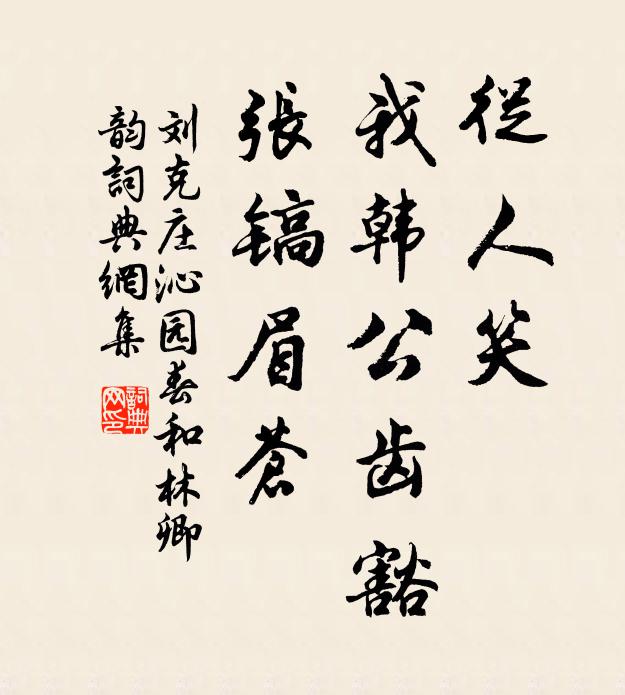 從人笑
我韩公齿豁
張镐眉蒼
刘克庄沁园春和林卿
韵詞典網集
詞典
网印